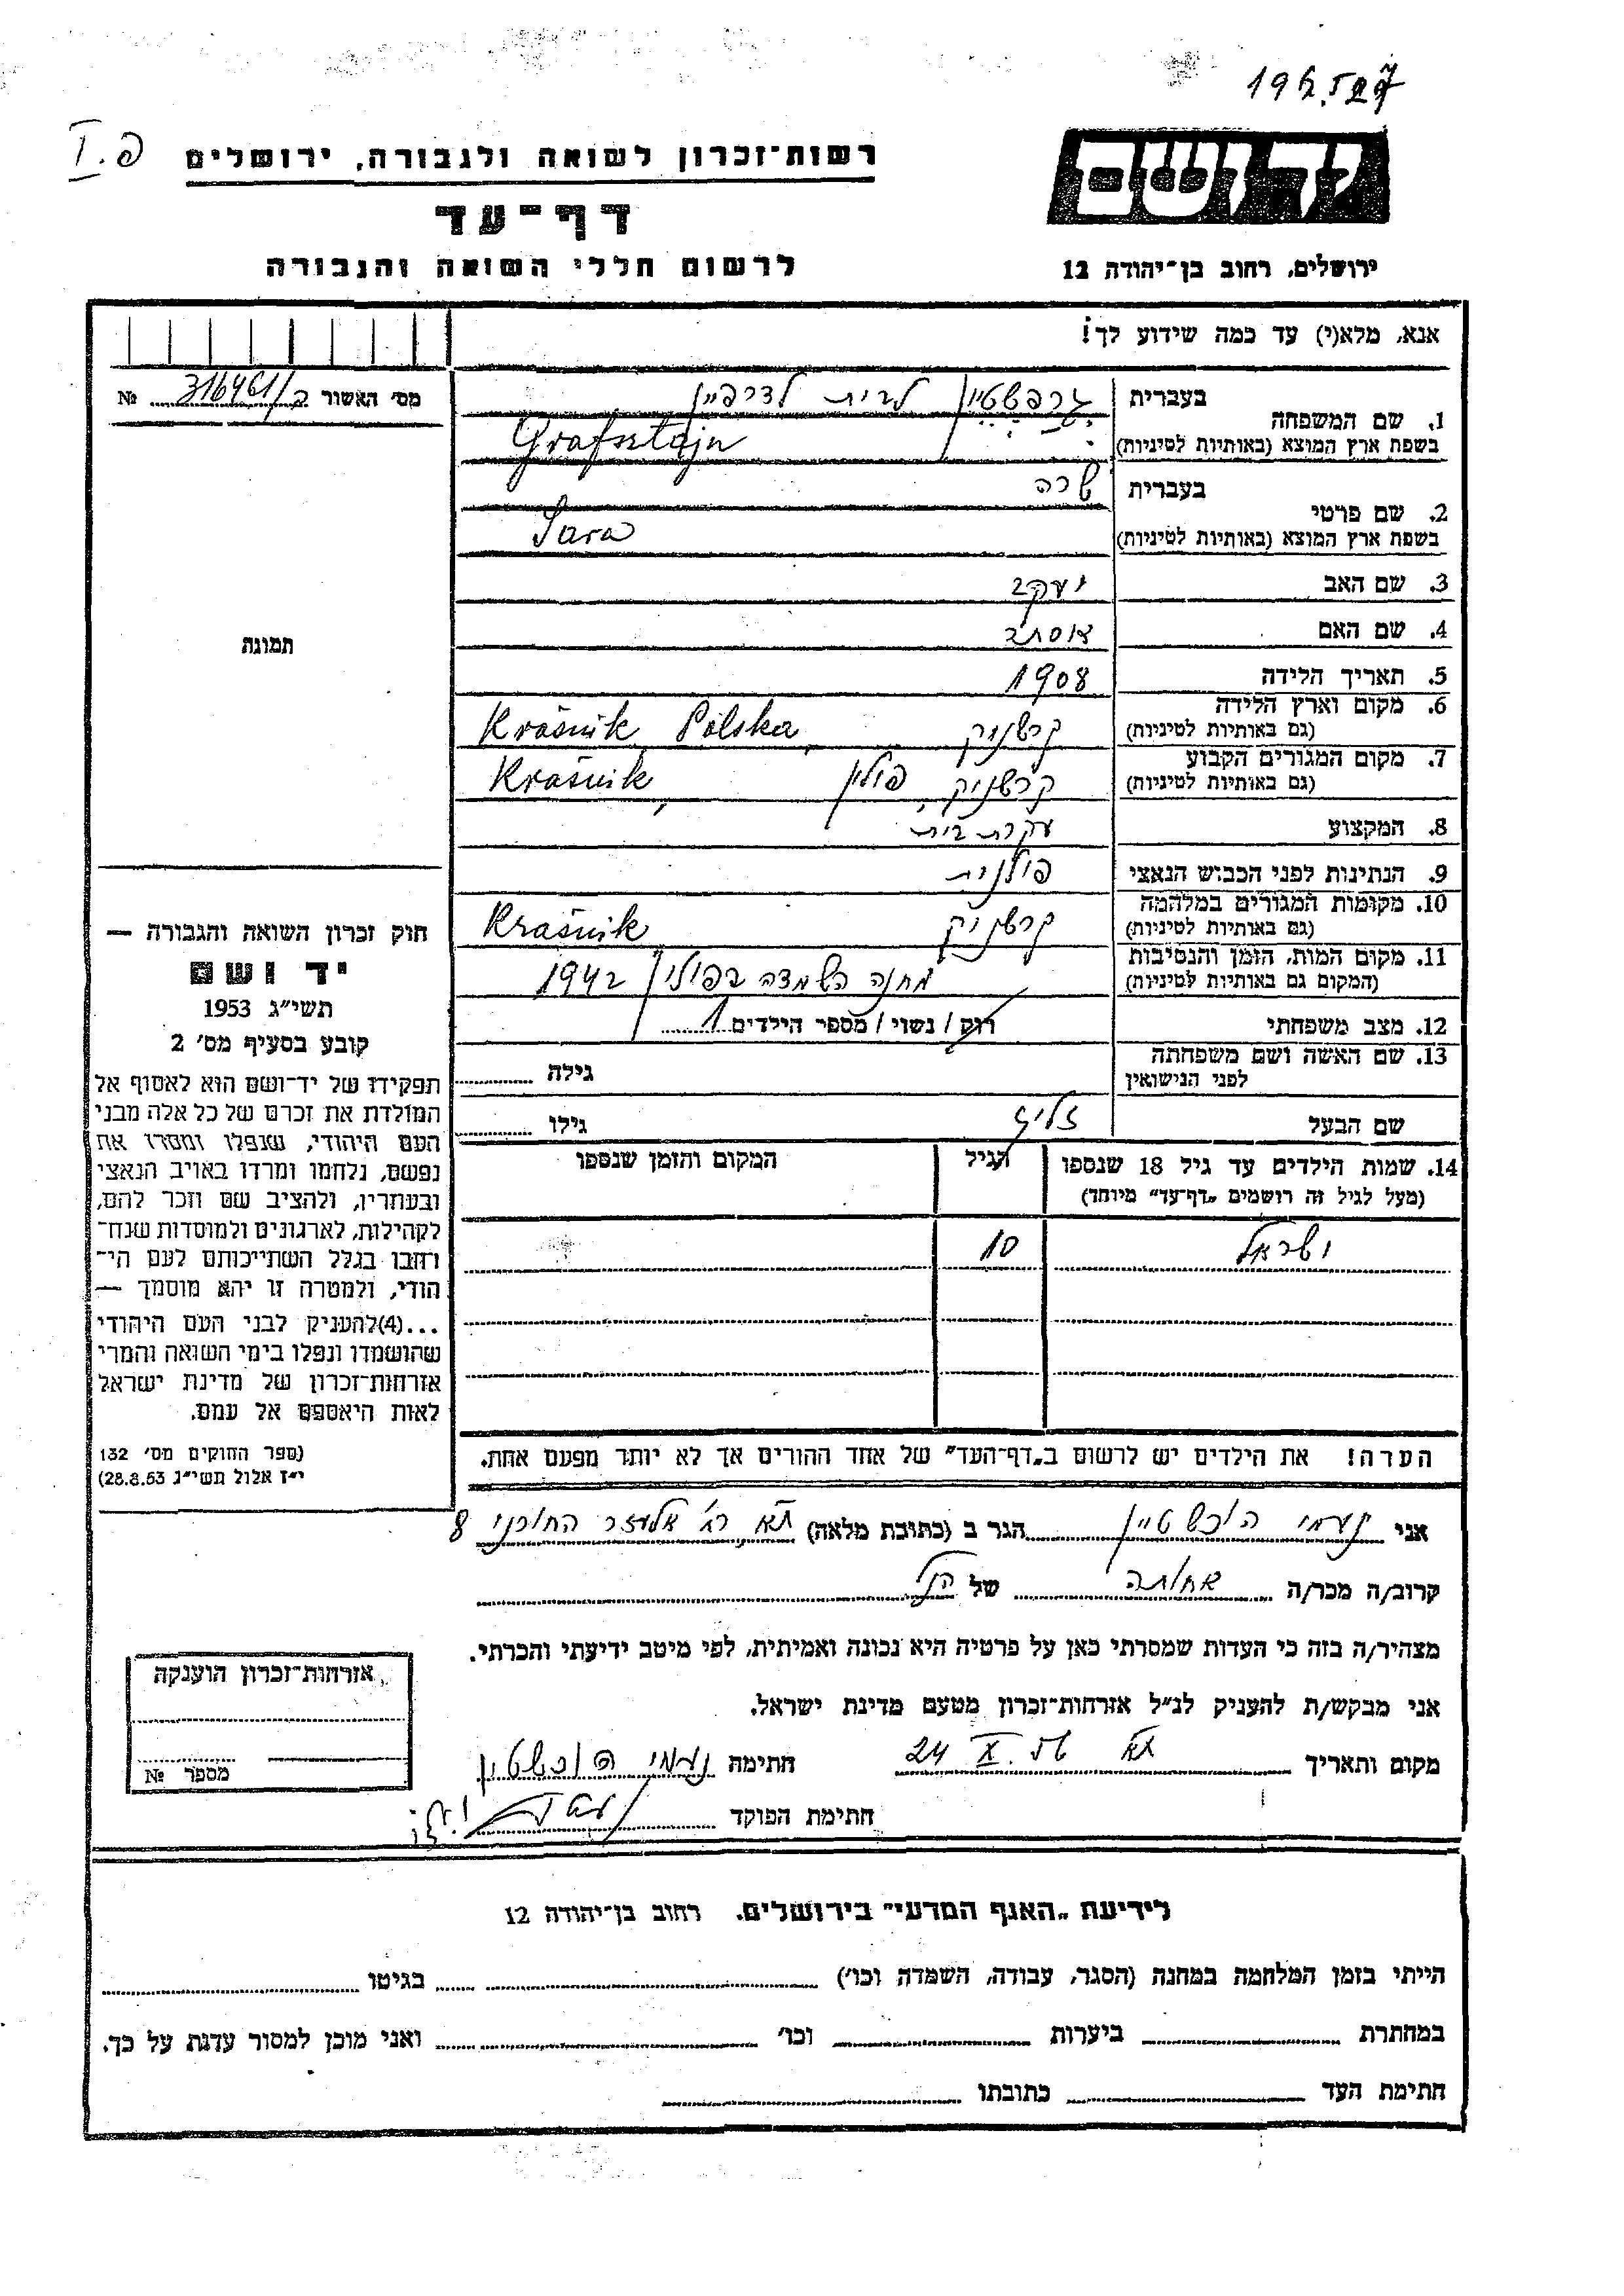 פ. I
רשות־זכרון לשואה ולגבורה, ירושלים
דף־עד
לרשום חללי השואה והגבורה
יד ושם
ירושלים, רחוב בן־יהודה 12
אנא, מלא(י) עד כמה שידוע לך!
מס׳ האשור 316461/ב №
1. שם המשפחה בעברית גרפשטיין לבית
בשפת ארץ המוצא (באותיות לטיניות) Grafsztajn
2. שם פרטי בעברית שרה
בשפת ארץ המוצא (באותיות לטיניות) Sara
3. שם האב יעקב
4. שם האם
5. תאריך הלידה 1908
6. מקום וארץ הלידה
(גם באותיות לטיניות) קרשניק Kraśnik Polska
7. מקום המגורים הקבוע
(גם באותיות לטיניות) קרשניק, פולין Kraśnik
8. המקצוע עקרת בית
9. הנתינות לפני הכבוש הנאצי פולנית
10. מקומות המגורים במלחמה
(גם באותיות לטיניות) קרשניק Kraśnik
11. מקום המות, הזמן והנסיבות
(המקום גם באותיות לטיניות) מחנה השמדה בפולין 1942
12. מצב משפחתי רוק / נשוי / מספר הילדים 1
13. שם האשה ושם משפחתה
לפני הנישואין גילה
שם הבעל זליג גילו
14. שמות הילדים עד גיל 18 שנספו הגיל המקום והזמן שנספו
(מעל לגיל זה רושמים „דף־עד״ מיוחד)
ישראל 10
הערה! את הילדים יש לרשום ב„דף־העד״ של אחד ההורים אך לא יותר מפעם אחת.
תמונה
חוק זכרון השואה והגבורה —
יד ושם
תשי״ג 1953
קובע בסעיף מס׳ 2
תפקידו של יד־ושם הוא לאסוף אל
המולדת את זכרם של כל אלה מבני
העם היהודי, שנפלו ומסרו את
נפשם, נלחמו ומרדו באויב הנאצי
ובעוזריו, ולהציב שם וזכר להם,
לקהילות, לארגונים ולמוסדות שנח־
רבו בגלל השתייכותם לעם הי־
הודי, ולמטרה זו יהא מוסמך —
...(4)להעניק לבני העם היהודי
שהושמדו ונפלו בימי השואה והמרי
אזרחות־זכרון של מדינת ישראל
לאות היאספם אל עמם.
(ספר החוקים מס׳ 132
י״ז אלול תשי״ג 28.8.53)
אני נעמי הוכשטיין הגר ב (כתובת מלאה) ת״א רב׳ אלעזר החורני 8
קרוב/ה מכר/ה אחותה של הנ״ל
מצהיר/ה בזה כי העדות שמסרתי כאן על פרטיה היא נכונה ואמיתית, לפי מיטב ידיעתי והכרתי.
אני מבקש/ת להעניק לנ״ל אזרחות־זכרון מטעם מדינת ישראל.
מקום ותאריך ת״א 24 X חתימה נעמי הוכשטיין
חתימת הפוקד
אזרחות־זכרון הוענקה
מספר №
לידיעת „האגף המדעי״ בירושלים. רחוב בן־יהודה 12
הייתי בזמן המלחמה במחנה (הסגר, עבודה, השמדה וכו׳) בגיטו
במחתרת ביערות וכו׳ ואני מוכן למסור עדות על כך.
חתימת העד כתובתו